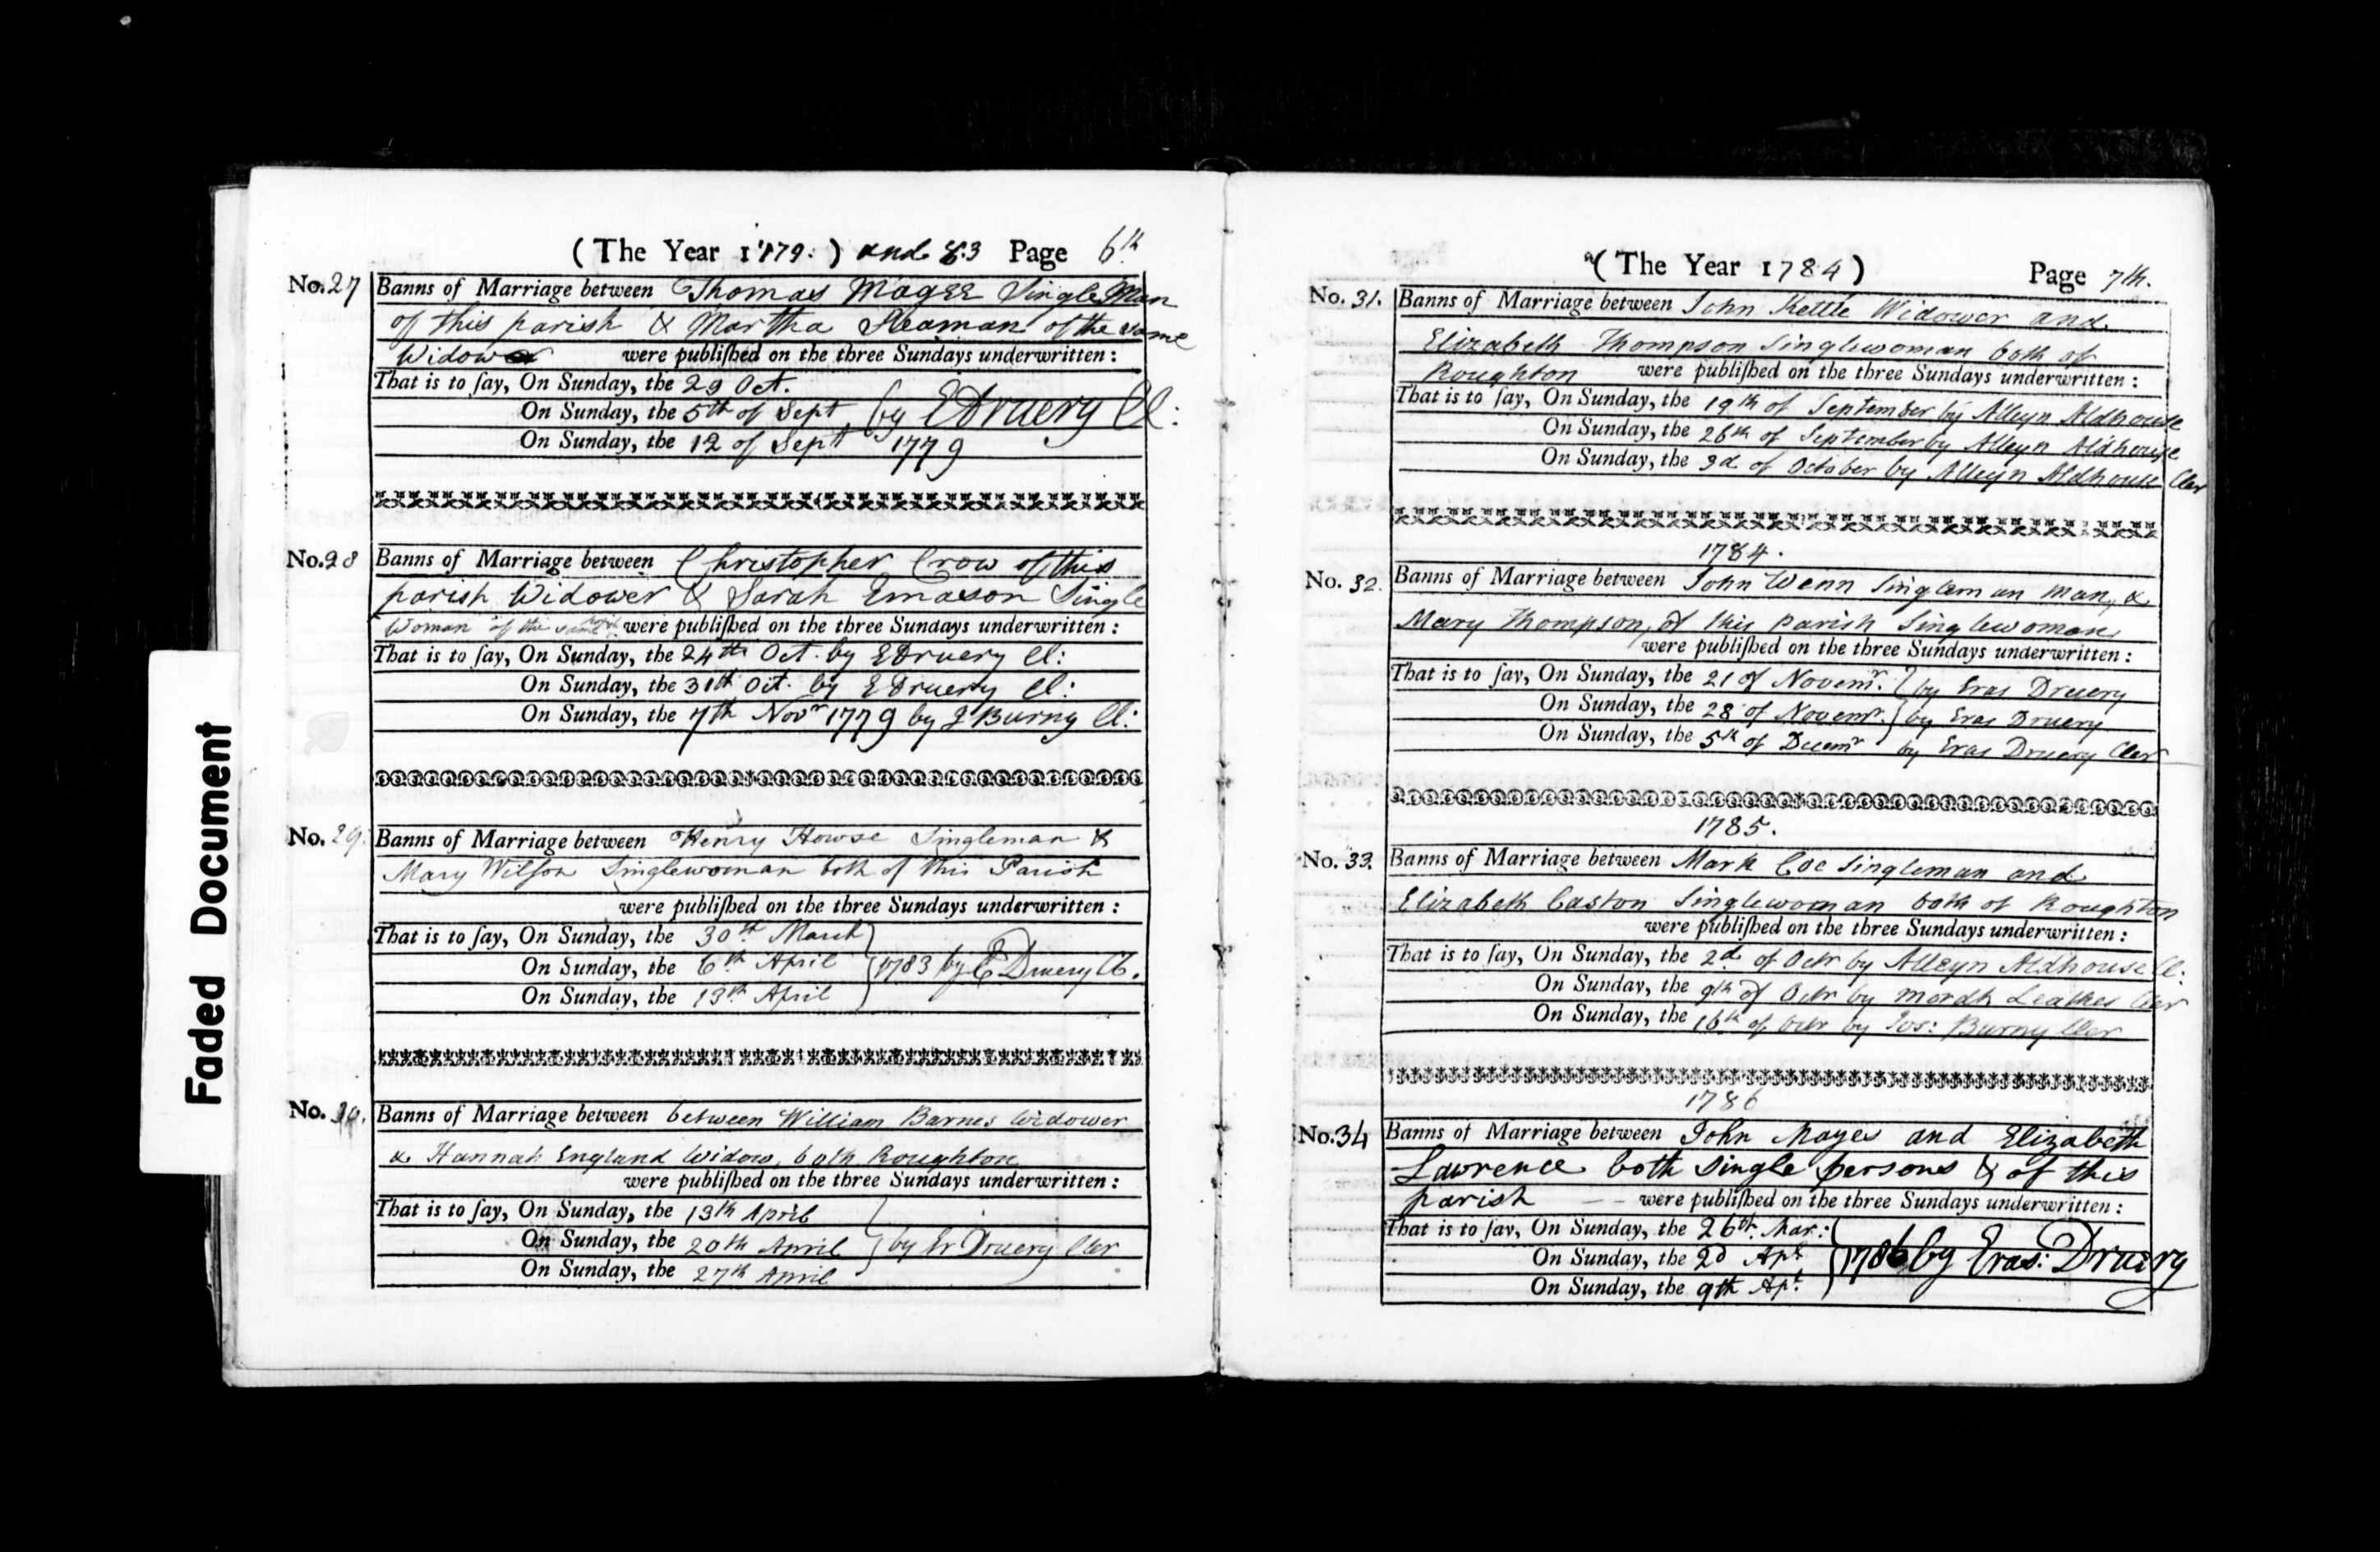 Faded Document
(The Year 1779:) and 83 Page 6th
No. 27 Banns of Marriage between Thomas Magee Single Man
of this parish & Martha Seaman of the same
Widow were publiſhed on the three Sundays underwritten:
That is to ſay, On Sunday, the 29 Oct.
On Sunday, the 5th of Sept by E Druery Cl:
On Sunday, the 12 of Sept 1779
No. 28 Banns of Marriage between Christopher Crow of this
parish Widower & Sarah Emason Single
Woman of the same were publiſhed on the three Sundays underwritten:
That is to ſay, On Sunday, the 24th Oct. by E Druery Cl:
On Sunday, the 31th Oct. by E Druery Cl:
On Sunday, the 7th Novr 1779 by J Burny Cl:
No. 29. Banns of Marriage between Henry Howse Singleman &
Mary Wilſon Singlewoman both of this Parish
were publiſhed on the three Sundays underwritten:
That is to ſay, On Sunday, the 30th March
On Sunday, the 6th April 1783 by E Druery Cl.
On Sunday, the 13th April
No. 30. Banns of Marriage between between William Barnes Widower
& Hannah England Widow, both Roughton
were publiſhed on the three Sundays underwritten:
That is to ſay, On Sunday, the 13th April
On Sunday, the 20th April by Er Druery Cler
On Sunday, the 27th April
(The Year 1784) Page 7th.
No. 31. Banns of Marriage between John Kettle Widower and
Elizabeth Thompson Singlewoman both of
Roughton were publiſhed on the three Sundays underwritten:
That is to ſay, On Sunday, the 19th of September by Alleyn Aldhouse
On Sunday, the 26th of September by Alleyn Aldhouse
On Sunday, the 3d of October by Alleyn Aldhouse Cler
1784.
No. 32. Banns of Marriage between John Wenn Singlem an man, &
Mary Thompson, of this parish Singlewoman
were publiſhed on the three Sundays underwritten:
That is to ſay, On Sunday, the 21 of Novemr. by Eras Druery
On Sunday, the 28 of Novemr. by Eras Druery
On Sunday, the 5th of Decemr by Eras Druery Cler
1785.
No. 33. Banns of Marriage between Mark Coe Singleman and
Elizabeth Caston Singlewoman both of Roughton
were publiſhed on the three Sundays underwritten:
That is to ſay, On Sunday, the 2d of Octr by Alleyn Aldhouse Cl:
On Sunday, the 9th of Octr by Mordh Leathes Cler
On Sunday, the 16th of Octr by Jos: Burny Cler
1786
No. 34 Banns of Marriage between John Mayes and Elizabeth
Lawrence both single persons & of this
parish were publiſhed on the three Sundays underwritten:
That is to ſay, On Sunday, the 26th Mar:
On Sunday, the 2d Apl. 1786 by Eras: Druery
On Sunday, the 9th Apl.